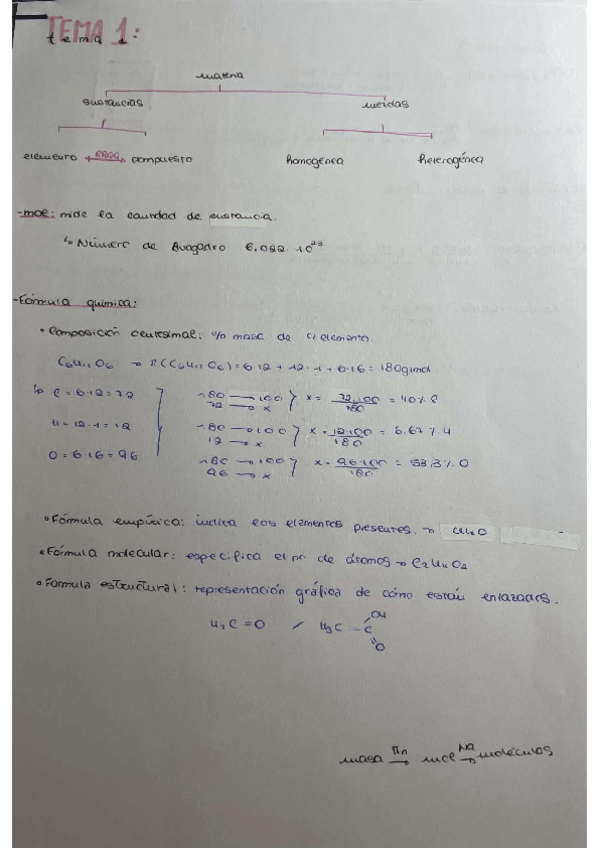 TEMA 1:
tema 1
materia
sustancias mezclas
elemento RRQQ compuesto homogénea heterogénea
-mol: mide la cantidad de sustancia.
↳ Número de Avogadro 6,022·10²³
-Fórmula química:
• Composición centesimal: % masa de c/ elemento
C₆H₁₂O₆ → M(C₆H₁₂O₆) = 6·12 + 12·1 + 6·16 = 180g/mol
↳ C = 6·12 = 72
180 → 100
72 → x
x = 72·100/180 = 40% C
H = 12·1 = 12
180 → 100
12 → x
x = 12·100/180 = 6.67% H
O = 6·16 = 96
180 → 100
96 → x
x = 96·100/180 = 53,3% O
• Fórmula empírica: indica los elementos presentes. → CH₂O
• Fórmula molecular: especifica el no de átomos → C₂H₄O₂
• Fórmula estructural: representación gráfica de cómo están enlazados.
H₂C=O / H₃C-C
OH
O
masa Mn → mol NA → moléculas